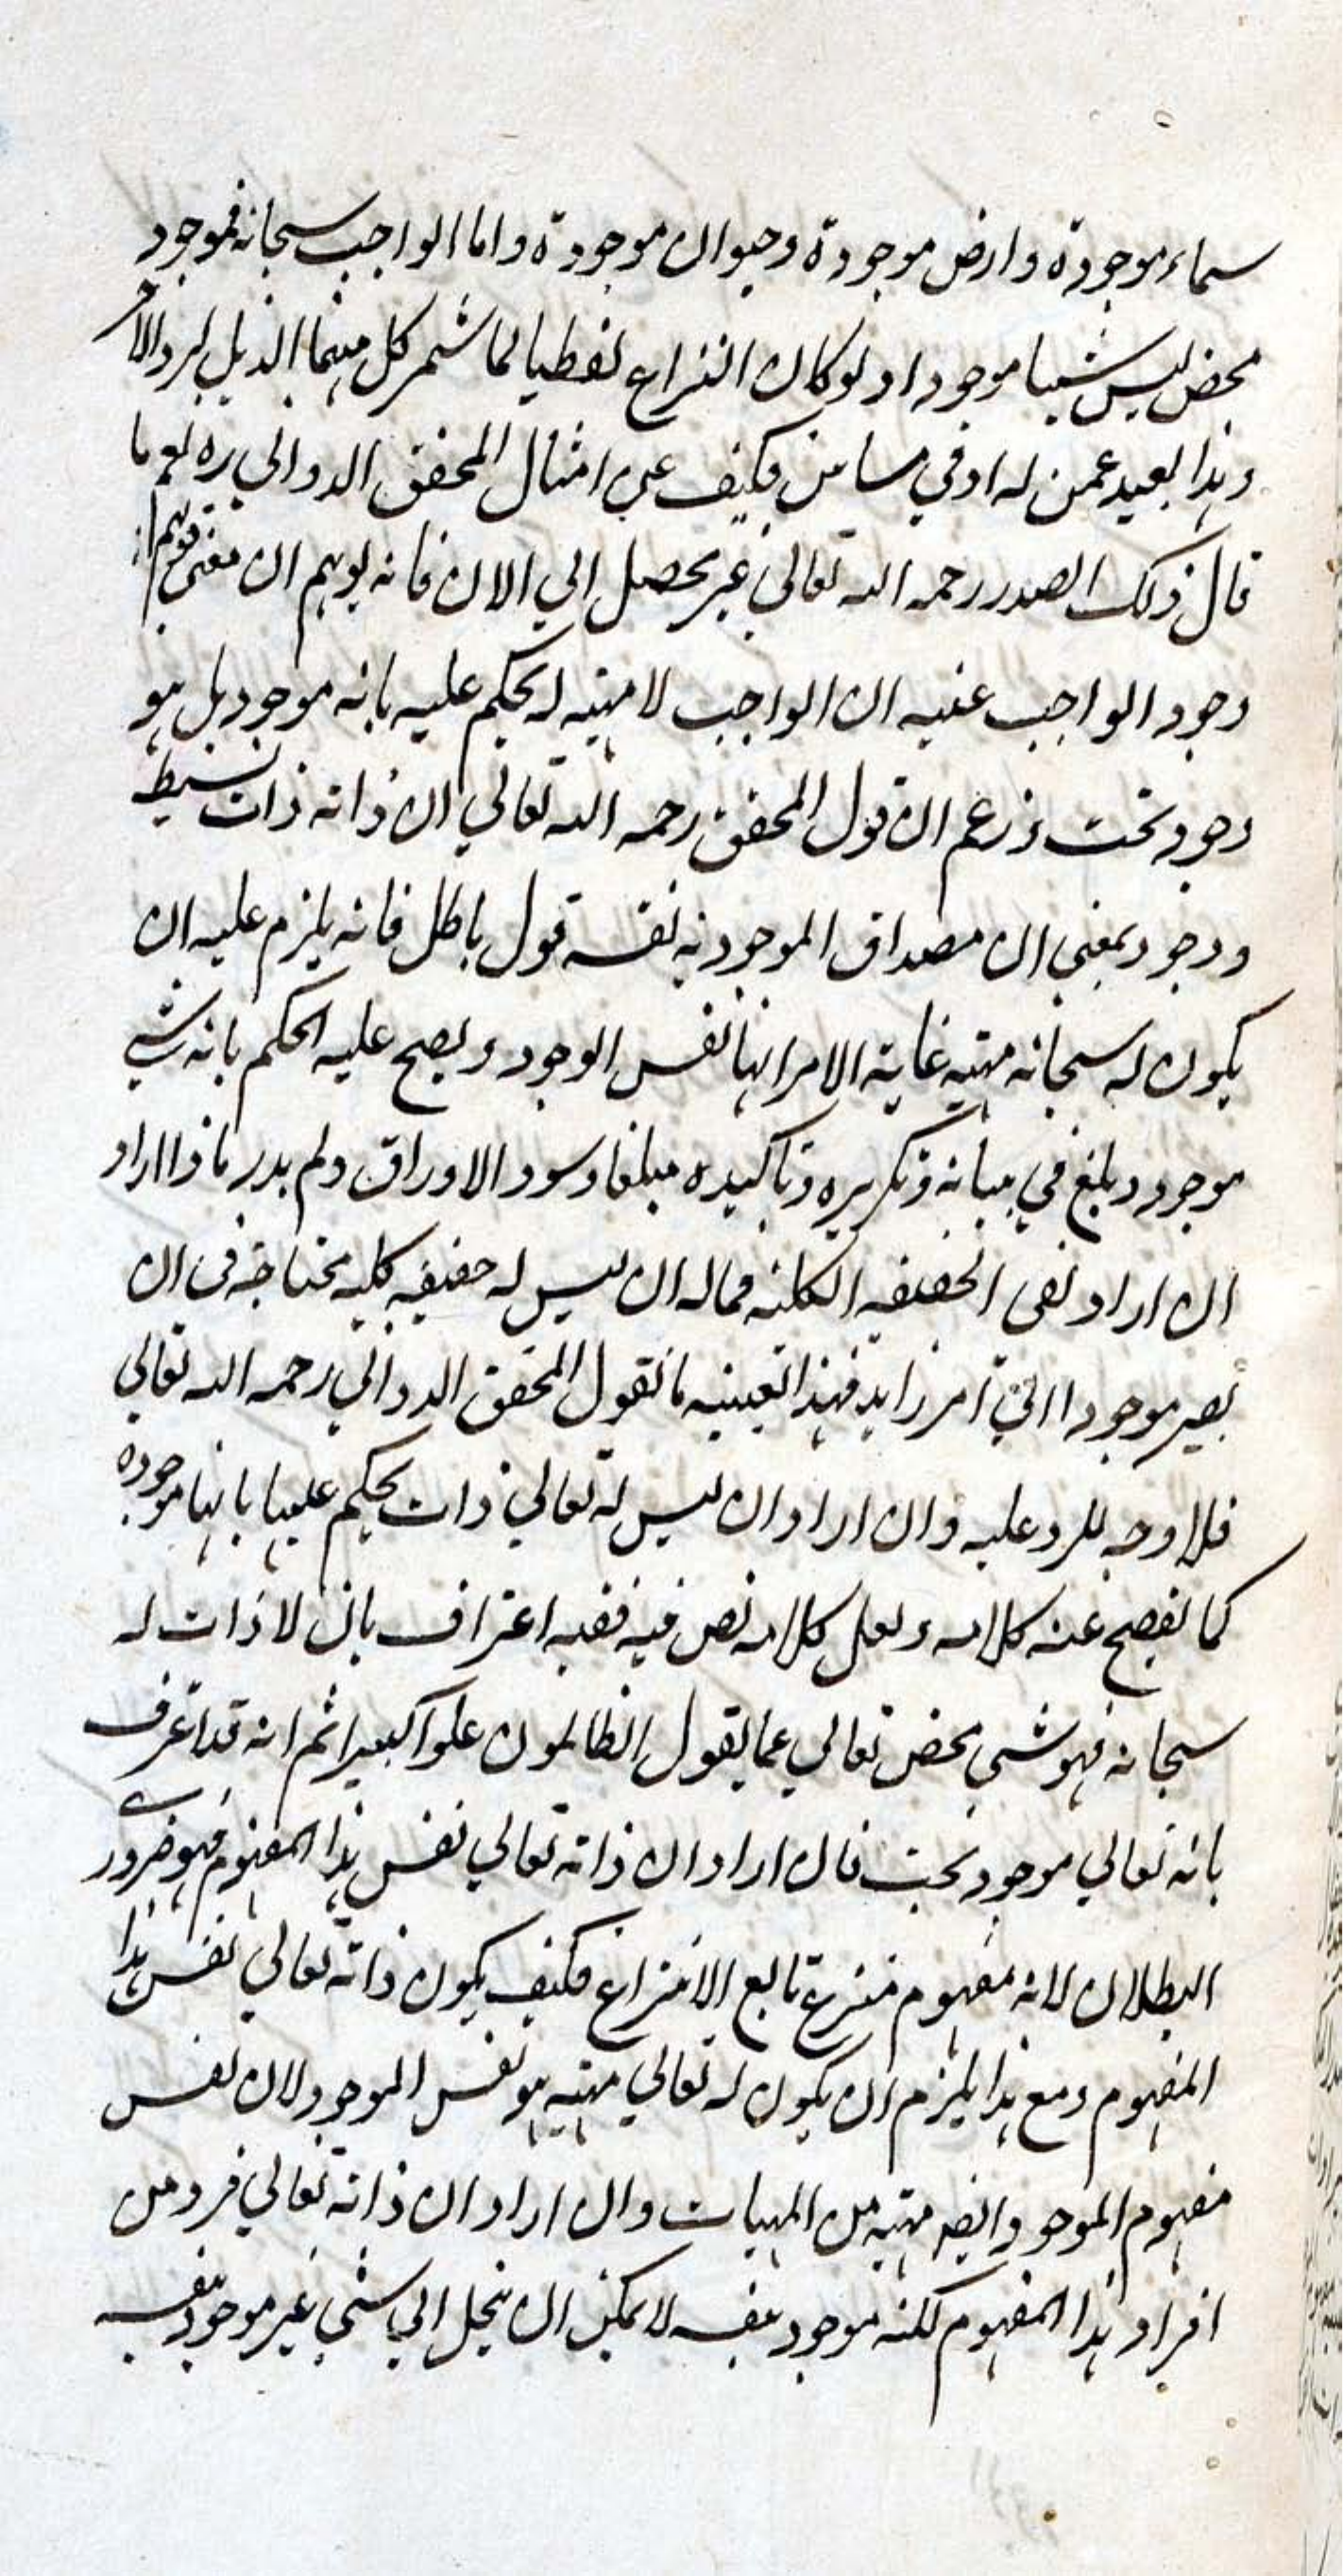 سماء موجودة وارض موجودة وحيوان موجودة واما الواجب سبحانه فموجود
محض ليس شيا موجودا ولو كان النزاع لفظيا لما شمر كل منهما الذيل لرد الآخر
وهذا بعيد عمن له ادني مساس فكيف عن امثال المحقق الدواني ره نعم ما
قال ذلك الصدر رحمه الله تعالي غير محصل الي الان فانه يوهم ان معني قولهم
وجود الواجب عينه ان الواجب لا مهية له يحكم عليه بانه موجود بل هو
وجود بحت وزعم ان قول المحقق رحمه الله تعالي ان ذاته ذات بسيط
ووجود بمعني ان مصداق الموجودية نفسه قول باطل فانه يلزم عليه ان
يكون له سبحانه مهية غاية الامر انها نفس الوجود ويصح عليه الحكم بانه شي
موجود وبلغ في بيانه وتكريره وتاكيده مبلغا وسود الاوراق ولم يدر ماذا اراد
ان اراد نفي الحقيقه الكليه فماله ان ليس له حقيقه كليه محتاجة في ان
يصير موجودا الي امر زايد فهذا بعينه ما يقول المحقق الدواني رحمه الله تعالي
فلا وجه للرد عليه وان اراد ان ليس له تعالي ذات يحكم عليها بانها موجودة
كما يفصح عنه كلامه ولعل كلامه نص فيه ففيه اعتراف بان لا ذات له
سبحانه فهو شي محض تعالي عما يقول الظالمون علوا كبيرا ثم انه قد اعترف
بانه تعالي موجود بحت فان اراد ان ذاته تعالي نفس هذا المفهوم فهو ضروري
البطلان لانه مفهوم منتزع تابع الانتزاع فكيف يكون ذاته تعالي نفس هذا
المفهوم ومع هذا يلزم ان يكون له تعالي مهية هو نفس الموجود لان نفس
مفهوم الموجود ايضا مهية من المهيات وان اراد ان ذاته تعالي فرد من
افراد هذا المفهوم لكنه موجود بنفسه لا يمكن ان ينحل الي شي غير موجود بنفسه